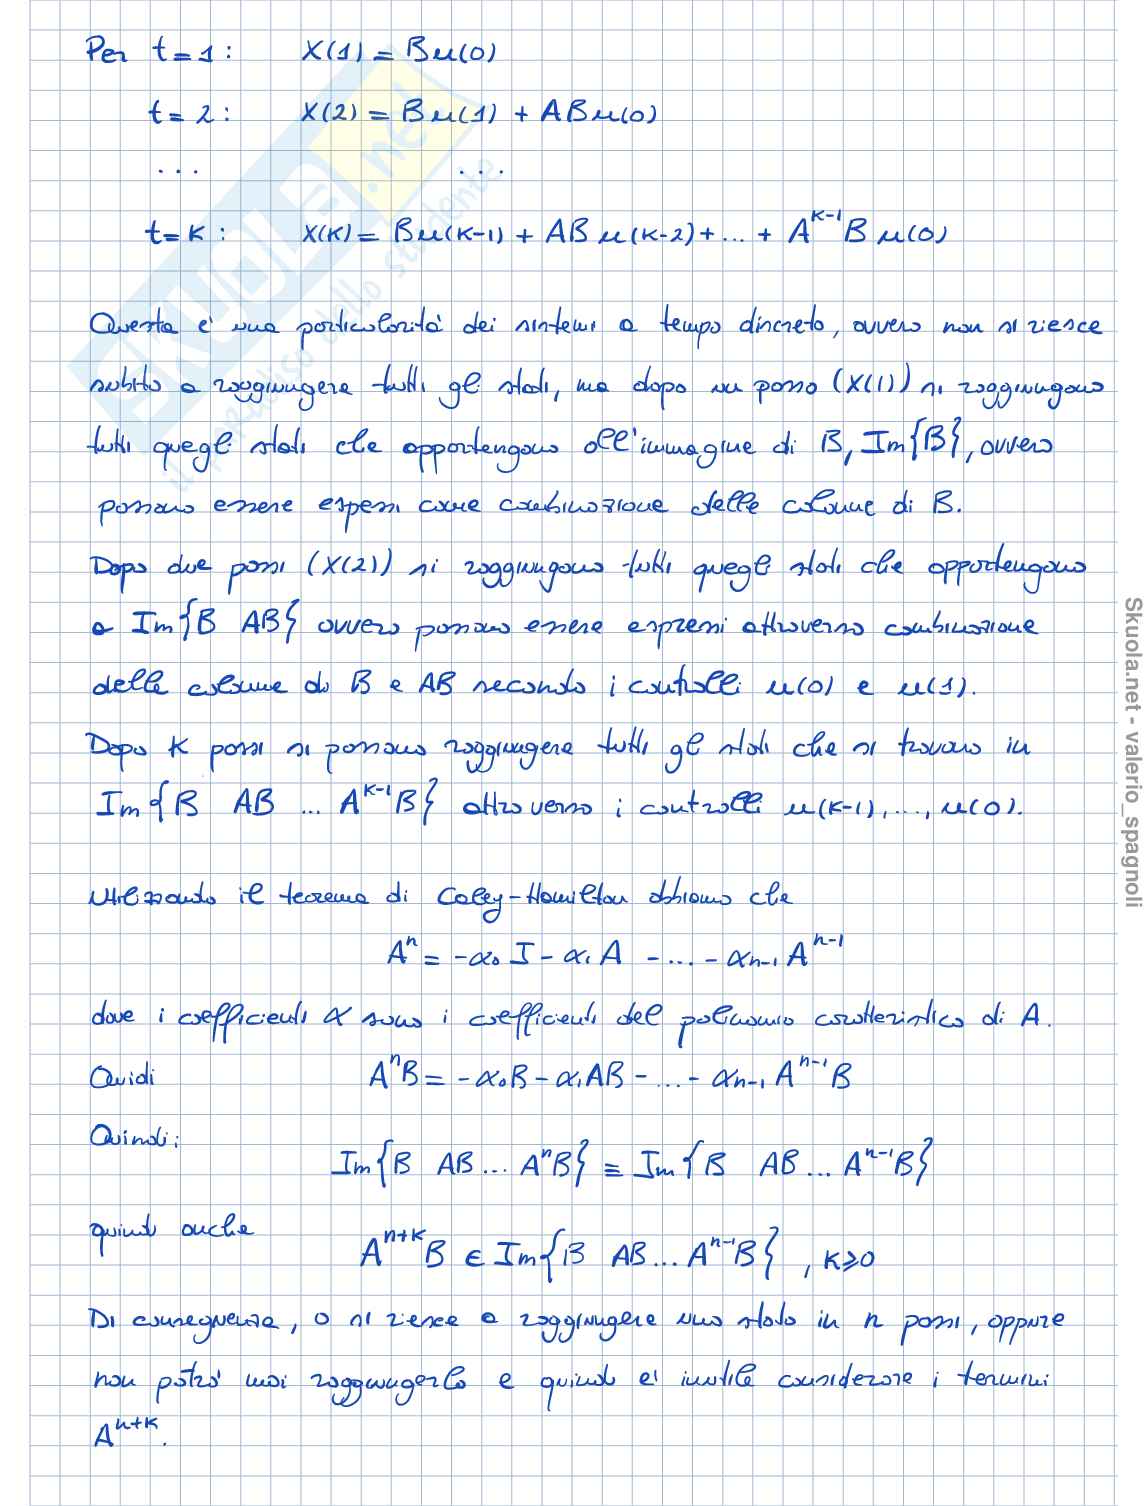 Per t=1: X(1) = Bu(0)
t=2: X(2) = Bu(1) + ABu(0)
... ...
t=K: X(K) = Bu(K-1) + ABu(K-2) + ... + A^{K-1}Bu(0)
Questa e' una particolarità dei sistemi a tempo discreto, ovvero non si riesce
subito a raggiungere tutti gli stati, ma dopo un passo (X(1)) si raggiungono
tutti quegli stati che appartengono all'immagine di B, Im{B}, ovvero
possono essere espessi come combinazione delle colonne di B.
Dopo due passi (X(2)) si raggiungono tutti quegli stati che appartengono
a Im{B AB} ovvero possono essere espressi attraverso combinazione
delle colonne di B e AB secondo i controlli u(0) e u(1).
Dopo K passi si possono raggiungere tutti gli stati che si trovano in
Im{B AB ... A^{K-1}B} attraverso i controlli u(K-1), ..., u(0).
Utilizzando il teorema di Caley-Hamilton abbiamo che
A^n = -α₀ I - α₁ A - ... - α_{n-1} A^{n-1}
dove i coefficienti α sono i coefficienti del polinomio caratteristico di A.
Quidi A^nB = -α₀B - α₁AB - ... - α_{n-1} A^{n-1}B
Quindi:
Im{B AB ... A^nB} ≡ Im{B AB ... A^{n-1}B}
quindi anche
A^{n+K}B ∈ Im{B AB ... A^{n-1}B}, K≥0
Di conseguenza, o si riesce a raggiungere uno stato in n passi, oppure
non potrò mai raggiungerlo e quindi e' inutile considerare i termini
A^{n+K}.
SKUOLA.net
il paradiso dello studente
Skuola.net - valerio_spagnoli